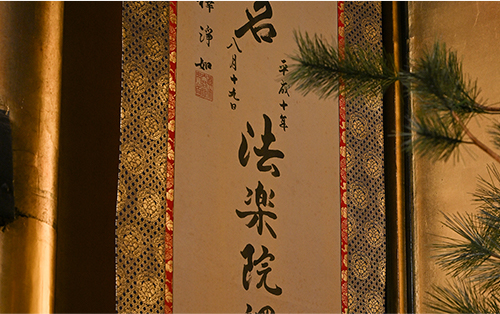 平成十年
名 法楽院
八月十九日
釋淨如